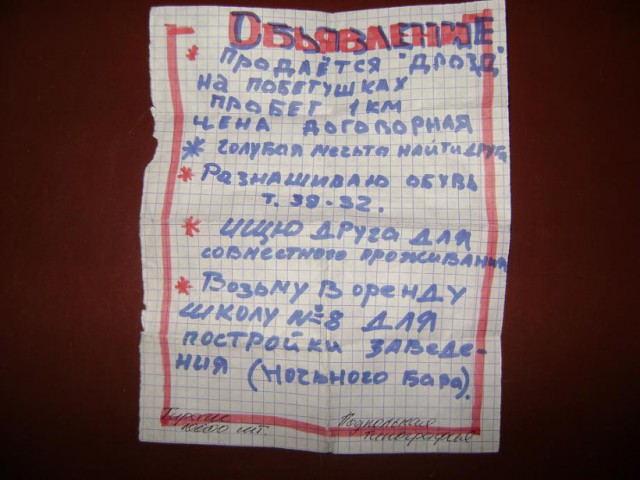 Объявление
* Продаётся "Дрозд"
на побегушках
пробег 1 км
цена договорная
* голубая мечьта найти друга
* Разнашиваю обувь
т. 39-32.
* ищю друга для
совместного проживания
* Возьму в оренду
школу №8 для
постройки заведе-
ния (Ночьного бара).
Тираж
10000 шт.
Подпольная
типография